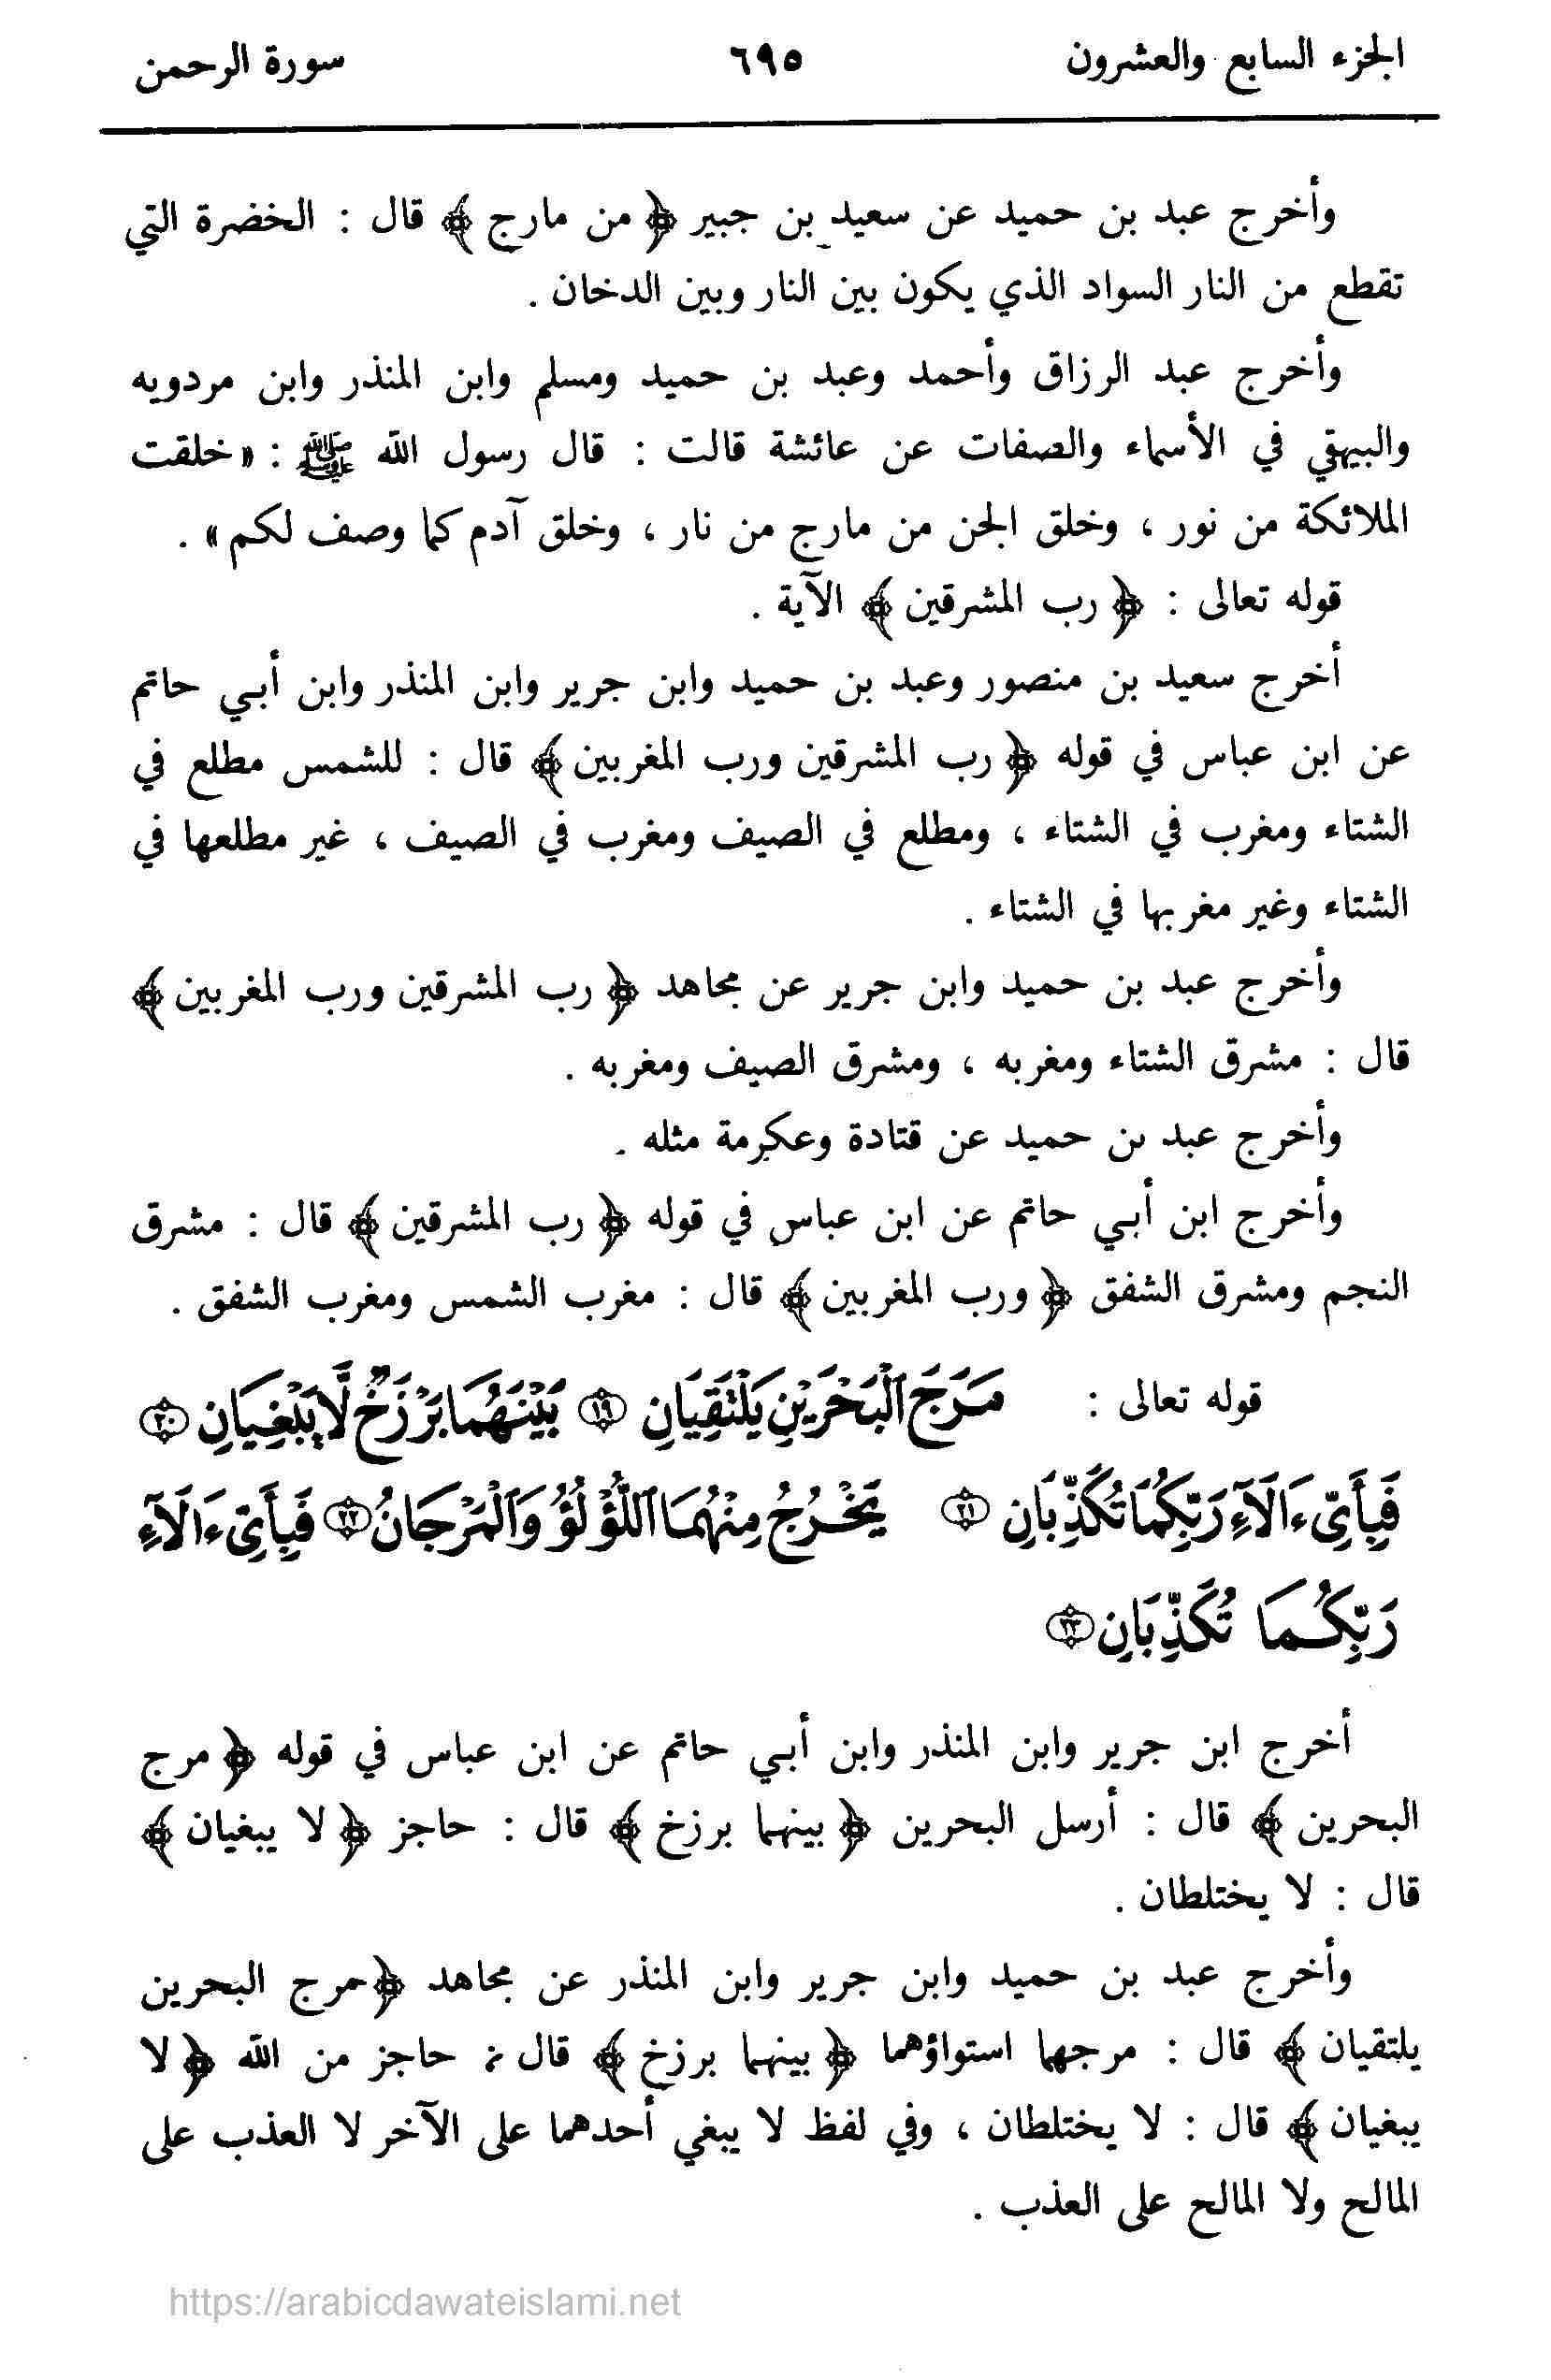 الجزء السابع والعشرون ٦٩٥ سورة الرحمن
وأخرج عبد بن حميد عن سعيد بن جبير ﴿ من مارج ﴾ قال : الخضرة التي
تقطع من النار السواد الذي يكون بين النار وبين الدخان .
وأخرج عبد الرزاق وأحمد وعبد بن حميد ومسلم وابن المنذر وابن مردويه
والبيهقي في الأسماء والصفات عن عائشة قالت : قال رسول الله ﷺ : « خلقت
الملائكة من نور ، وخلق الجن من مارج من نار ، وخلق آدم كما وصف لكم » .
قوله تعالى : ﴿ رب المشرقين ﴾ الآية .
أخرج سعيد بن منصور وعبد بن حميد وابن جرير وابن المنذر وابن أبي حاتم
عن ابن عباس في قوله ﴿ رب المشرقين ورب المغربين ﴾ قال : للشمس مطلع في
الشتاء ومغرب في الشتاء ، ومطلع في الصيف ومغرب في الصيف ، غير مطلعها في
الشتاء وغير مغربها في الشتاء .
وأخرج عبد بن حميد وابن جرير عن مجاهد ﴿ رب المشرقين ورب المغربين ﴾
قال : مشرق الشتاء ومغربه ، ومشرق الصيف ومغربه .
وأخرج عبد بن حميد عن قتادة وعكرمة مثله .
وأخرج ابن أبي حاتم عن ابن عباس في قوله ﴿ رب المشرقين ﴾ قال : مشرق
النجم ومشرق الشفق ﴿ ورب المغربين ﴾ قال : مغرب الشمس ومغرب الشفق .
قوله تعالى : مَرَجَ ٱلْبَحْرَيْنِ يَلْتَقِيَانِ ١٩ بَيْنَهُمَا بَرْزَخٌ لَّا يَبْغِيَانِ ٢٠
فَبِأَىِّ ءَالَآءِ رَبِّكُمَا تُكَذِّبَانِ ٢١ يَخْرُجُ مِنْهُمَا ٱللُّؤْلُؤُ وَٱلْمَرْجَانُ ٢٢ فَبِأَىِّ ءَالَآءِ
رَبِّكُمَا تُكَذِّبَانِ ٢٣
أخرج ابن جرير وابن المنذر وابن أبي حاتم عن ابن عباس في قوله ﴿ مرج
البحرين ﴾ قال : أرسل البحرين ﴿ بينهما برزخ ﴾ قال : حاجز ﴿ لا يبغيان ﴾
قال : لا يختلطان .
وأخرج عبد بن حميد وابن جرير وابن المنذر عن مجاهد ﴿ مرج البحرين
يلتقيان ﴾ قال : مرجهما استواؤهما ﴿ بينهما برزخ ﴾ قال : حاجز من الله ﴿ لا
يبغيان ﴾ قال : لا يختلطان ، وفي لفظ لا يبغي أحدهما على الآخر لا العذب على
المالح ولا المالح على العذب .
https://arabicdawateislami.net